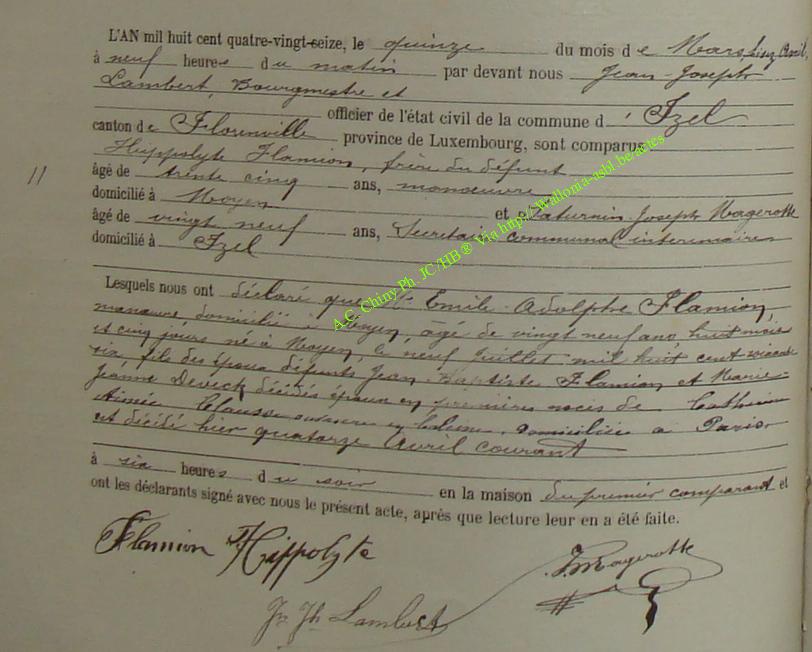 L'AN mil huit cent quatre-vingt-seize, le quinze du mois de Mars, lisez Avril,
à neuf heures du matin par devant nous Jean-Joseph
Lambert, Bourgmestre et
officier de l'état civil de la commune d'Izel
canton de Florenville province de Luxembourg, sont comparus
Hippolyte Flamion, frère du défunt
11
âgé de trente cinq ans, manœuvre
domicilié à Moyen et Saturnin Joseph Magerotte
âgé de vingt neuf ans, Secrétaire communal intérimaire
domicilié à Izel
Lesquels nous ont déclaré que Emile-Adolphe Flamion,
manœuvre domicilié à Moyen, âgé de vingt neuf ans, huit mois
et cinq jours né à Moyen, le neuf Juillet mil huit cent soixante
six, fils des époux défunts Jean-Baptiste Flamion et Marie-
Jeanne décédés époux en premières noces de
Aimée Clausse domiciliée à Paris.
est décédé hier quatorze Avril courant
à six heures du soir en la maison du premier comparant et
ont les déclarants signé avec nous le présent acte, après que lecture leur en a été faite.
Flamion Hippolyte
J. Magerotte
Jn Jh Lambert
A.C. Chiny Ph. JC/HB ® Via http://Wallonia-asbl.be/actes